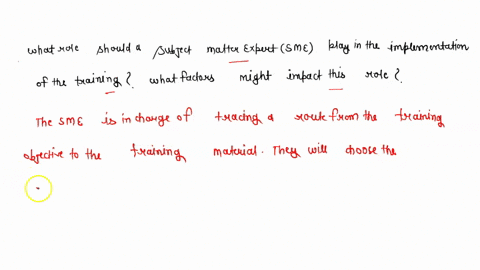 what role should a subject matter Expert (SME) play in the implementation
of the training? what factors might impact this role?
The SME is in charge of tracing a route from the training
objective to the training material. They will choose the